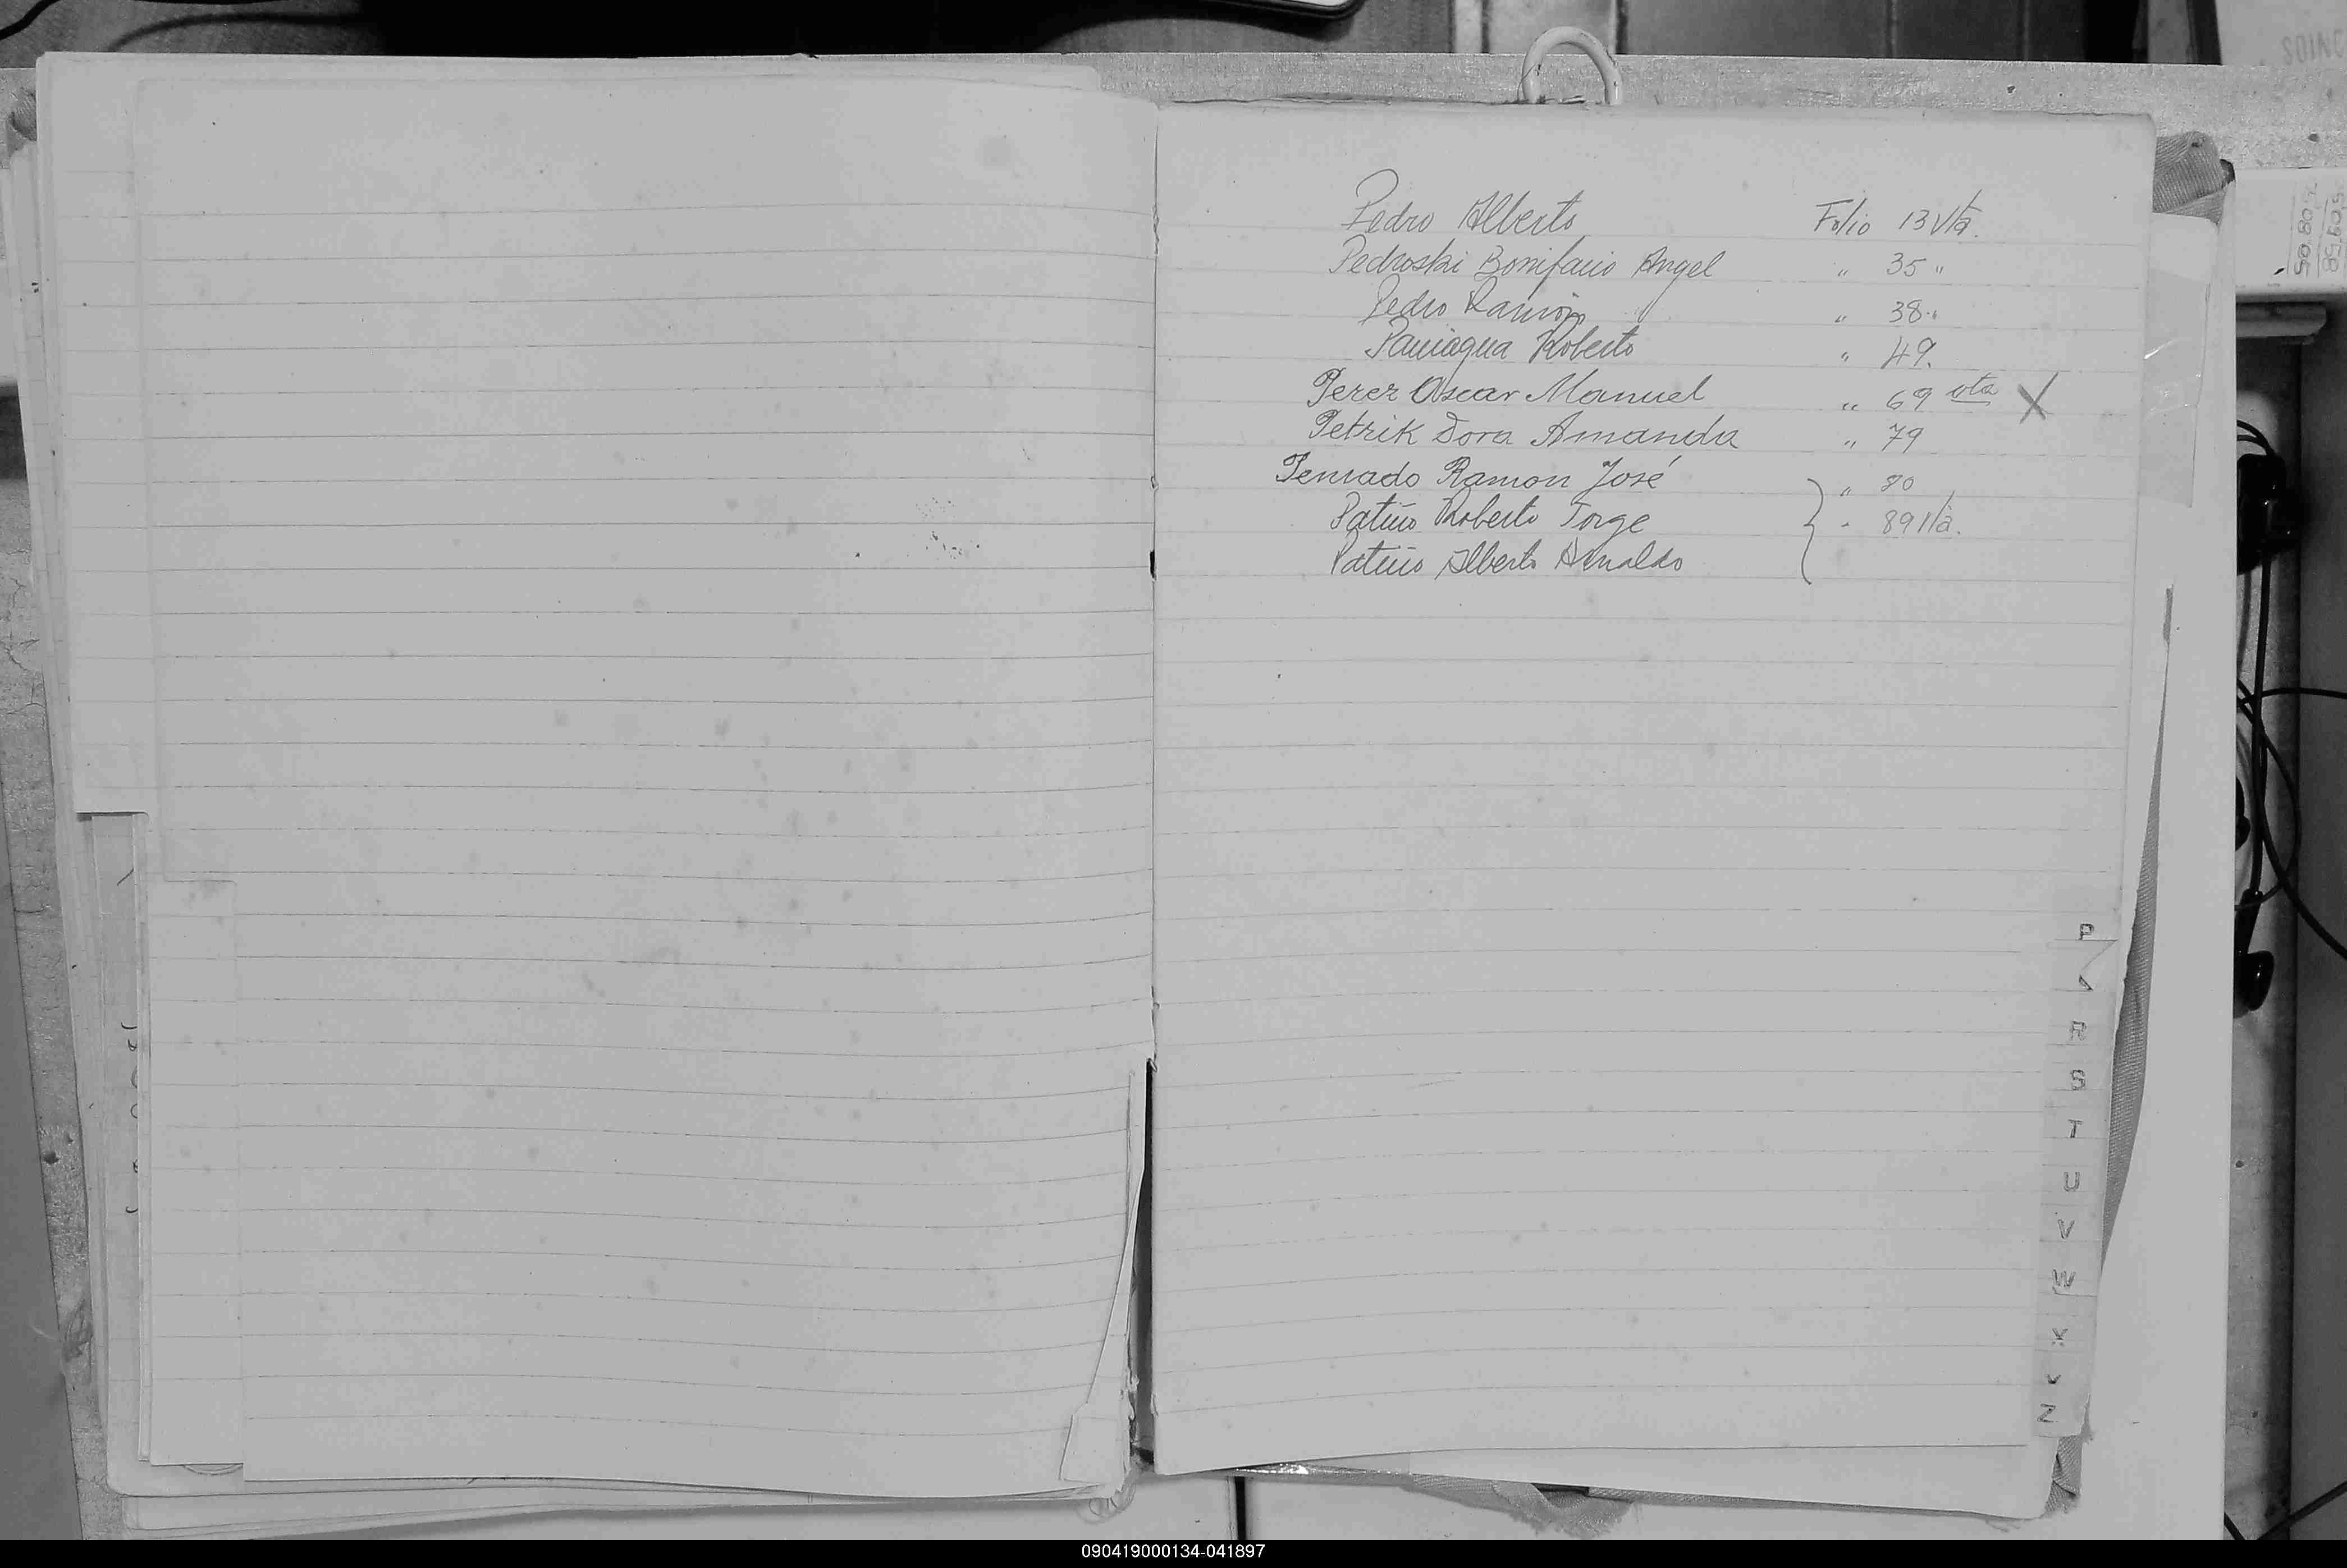 Pedro Alberto Folio 13 Vta.
Pedroski Bonifacio Angel " 35 "
Pedro Ramón " 38 "
Paniagua Roberto " 49.
Perez Oscar Manuel " 69 vta X
Petrik Dora Amanda " 79
Ramon José " 80
Patiño Roberto Jorge " 89 Vta.
Patiño Alberto Arnaldo
P
R
S
T
U
V
W
Z
090419000134-041897